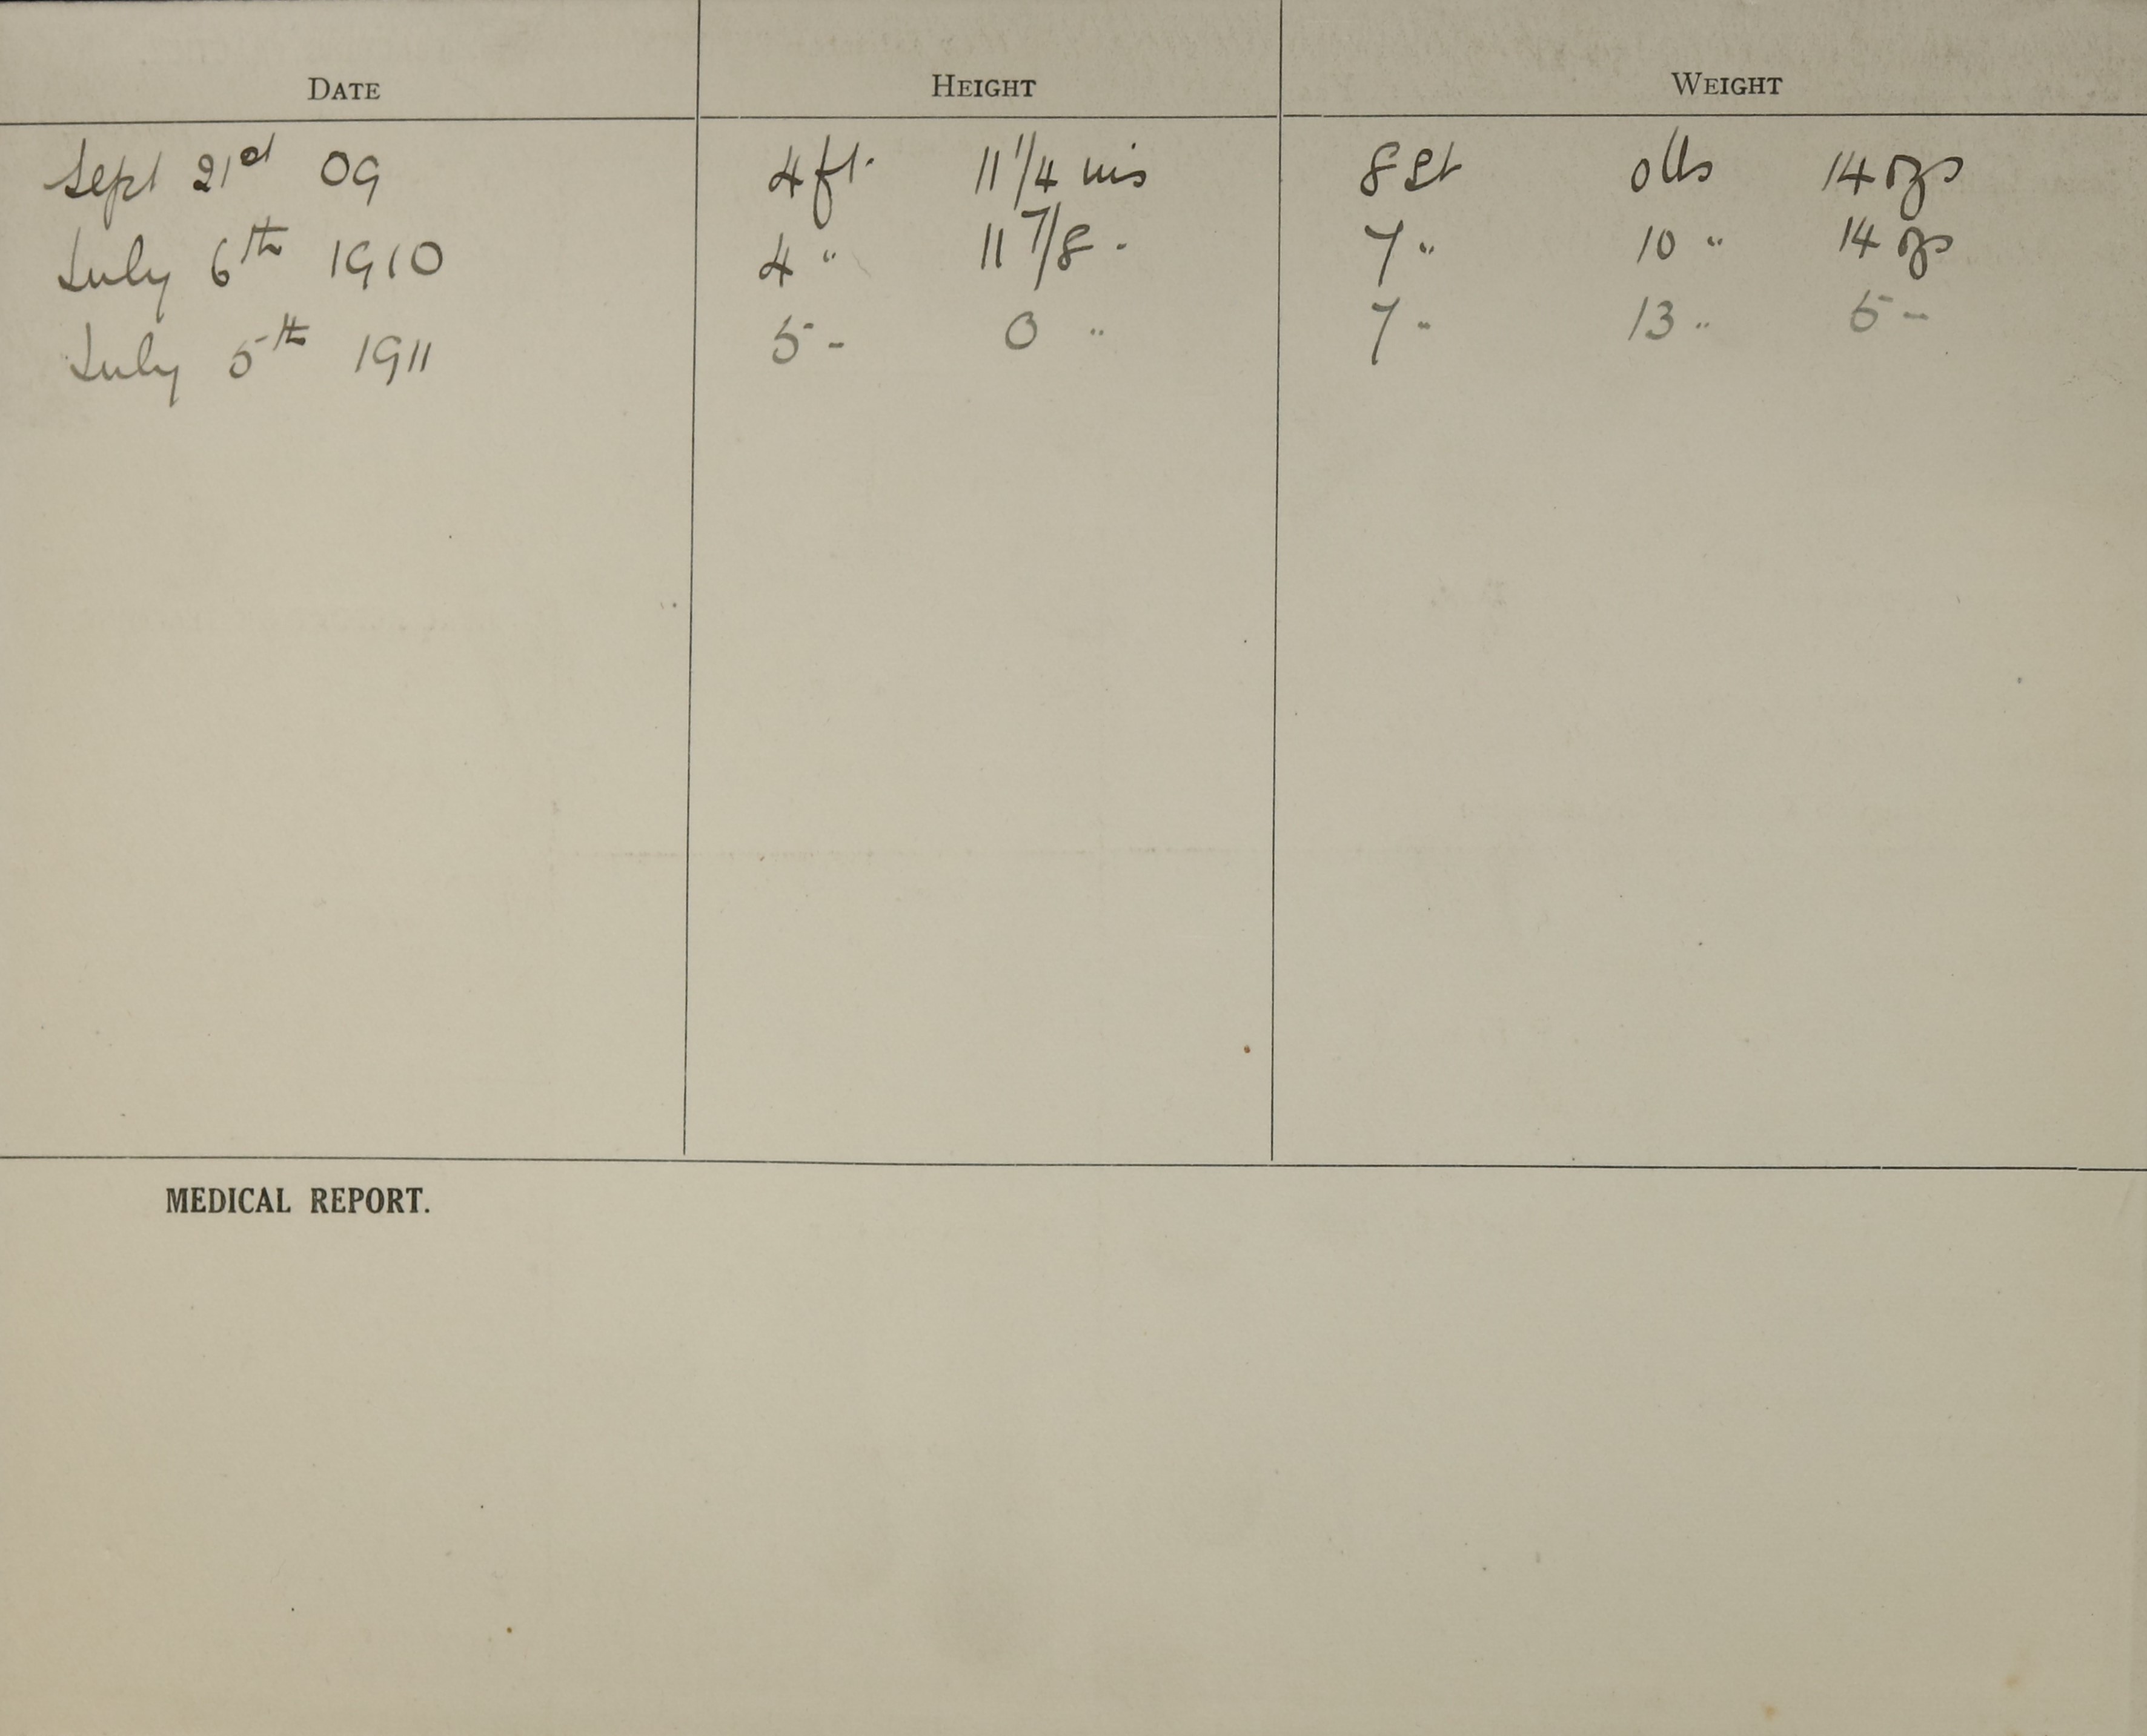 DATE HEIGHT WEIGHT
Sept 21st 09 4 ft. 11 1/4 ins 8 St 0 lbs 14 ozs
July 6th 1910 4 " 11 7/8 - 7 " 10 " 14 ozs
July 5th 1911 5 - 0 " 7 " 13 " 5 -
MEDICAL REPORT.